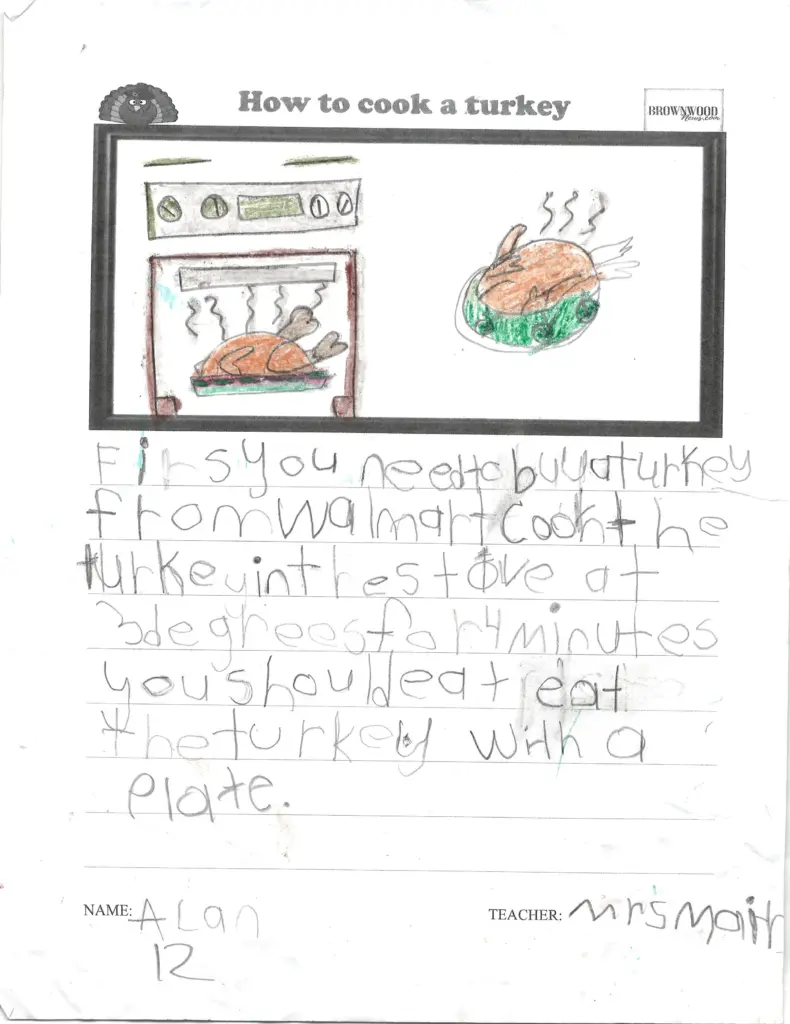 How to cook a turkey
BROWNWOOD
News.com
Firs you need to buy a turkey
from Walmart Cook the
turkey in the stove at
3 degrees for 4 minutes
you should eat eat
the turkey with a
Plate.
NAME: Alan
TEACHER: Mrs
12